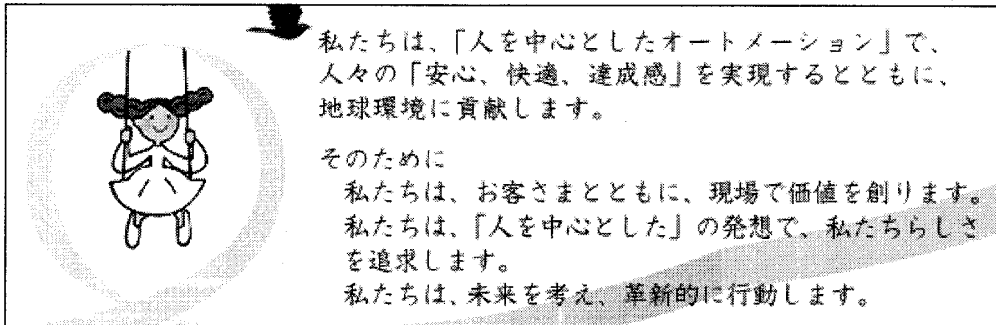 私たちは、「人を中心としたオートメーション」で、
人々の「安心、快適、達成感」を実現するとともに、
地球環境に貢献します。
そのために
私たちは、お客さまとともに、現場で価値を創ります。
私たちは、「人を中心とした」の発想で、私たちらしさ
を追求します。
私たちは、未来を考え、革新的に行動します。